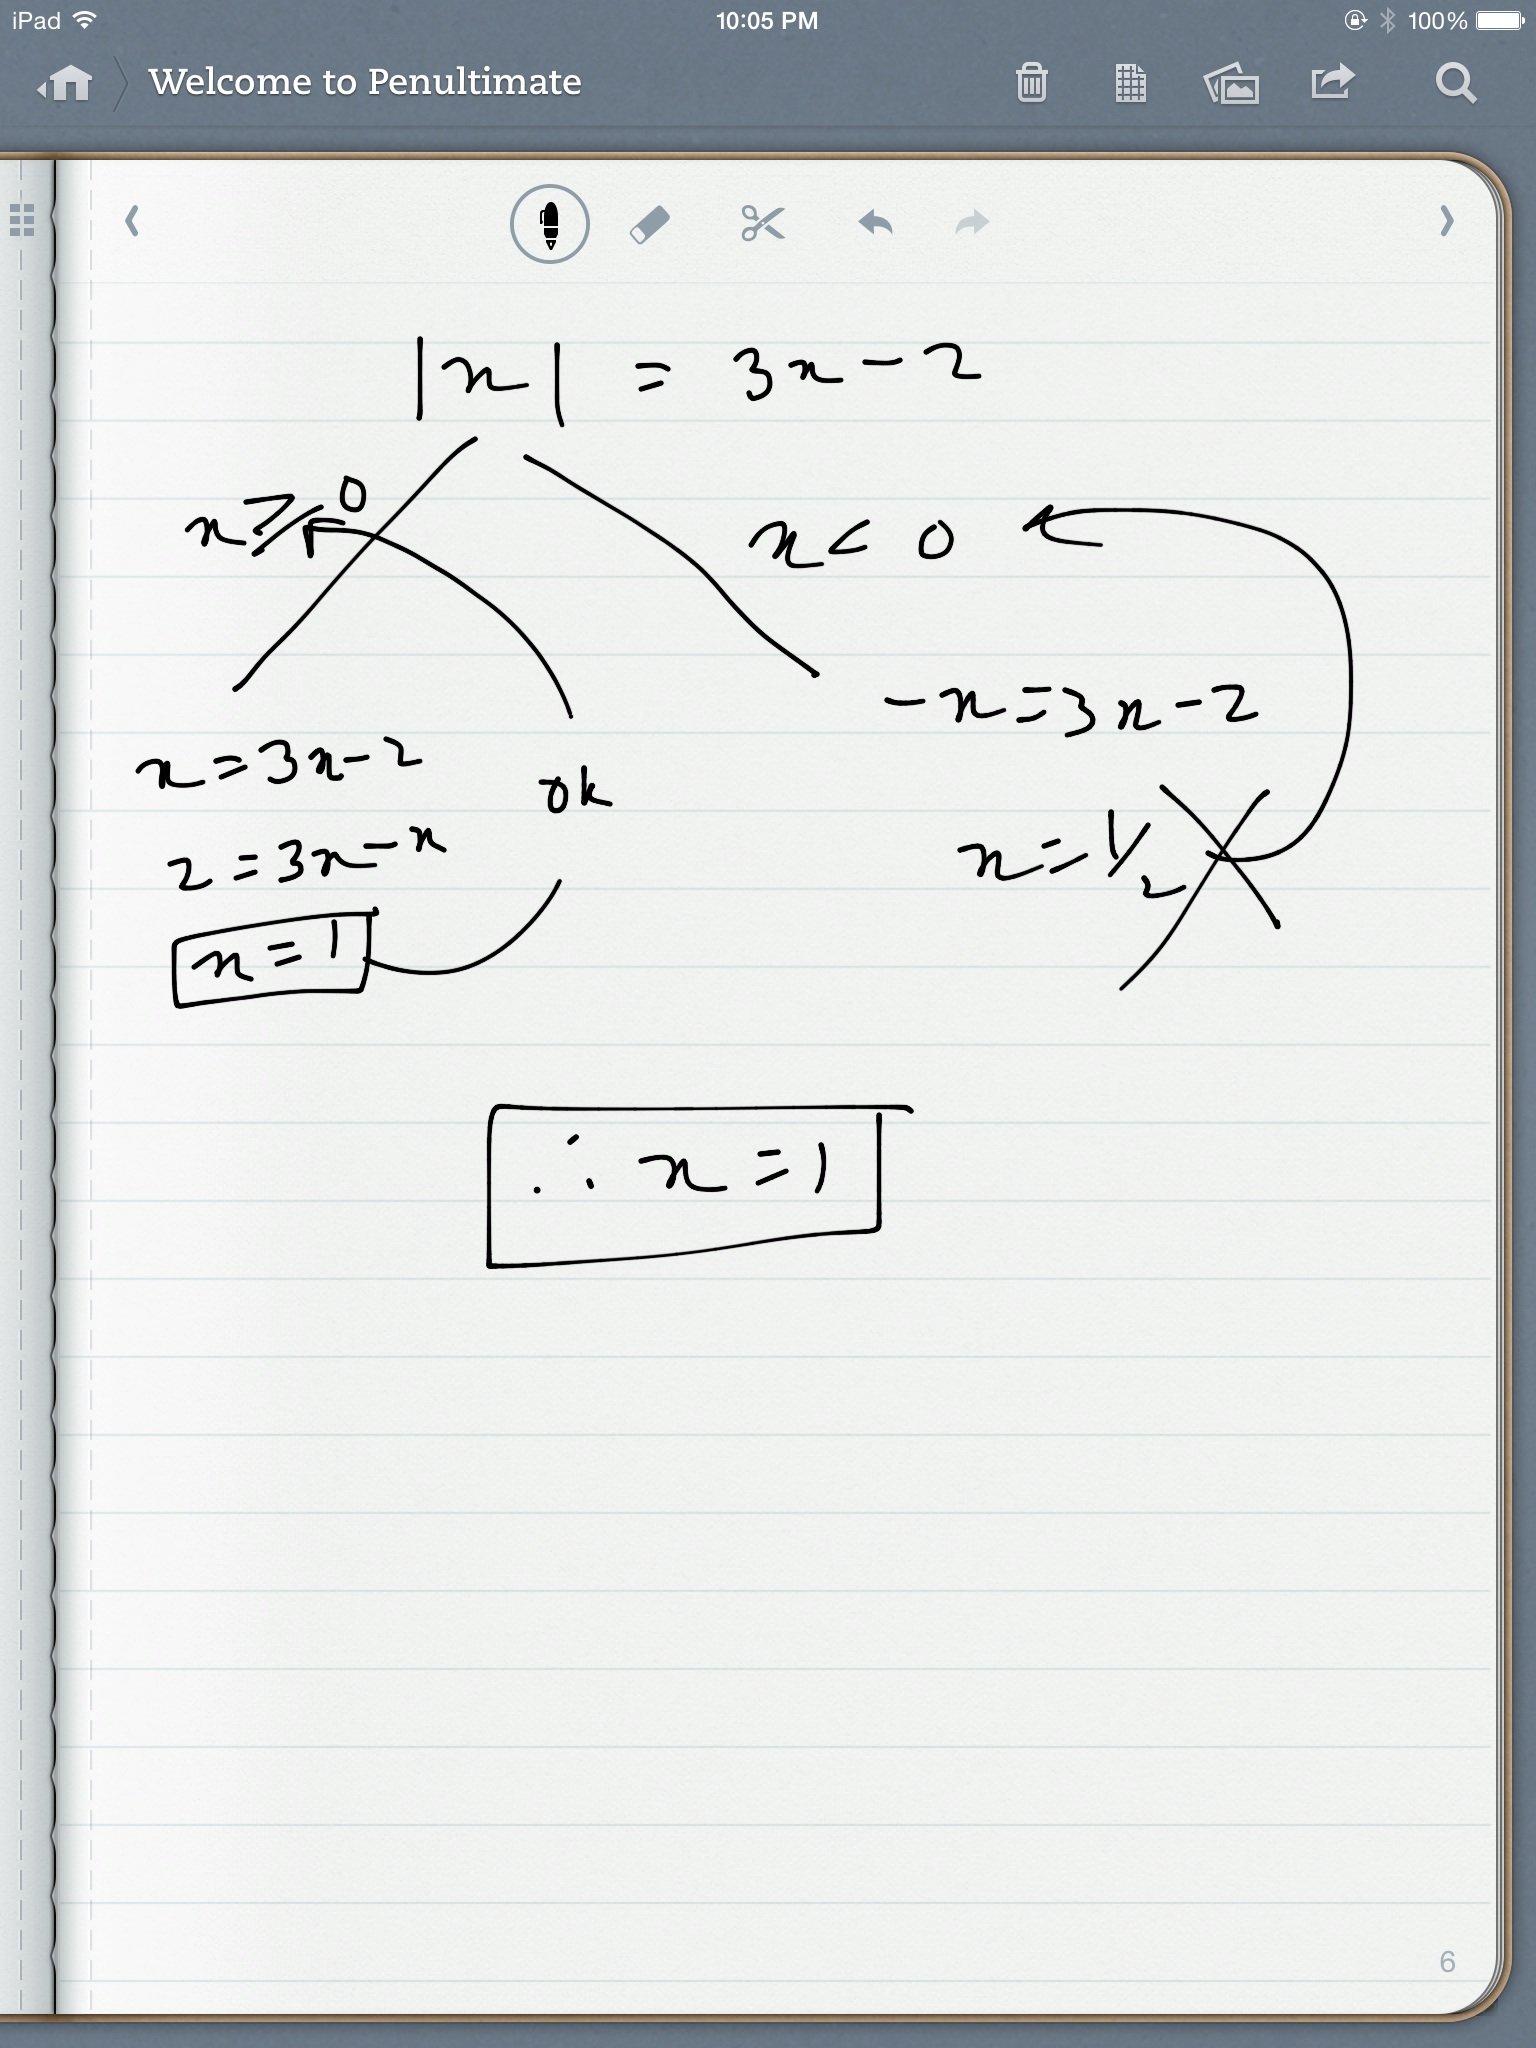 iPad 10:05 PM 100%
Welcome to Penultimate
|x| = 3x - 2
x ≥ 0
x < 0
-x = 3x - 2
x = 3x - 2
ok
2 = 3x - x
x = 1/2
x = 1
∴ x = 1
6